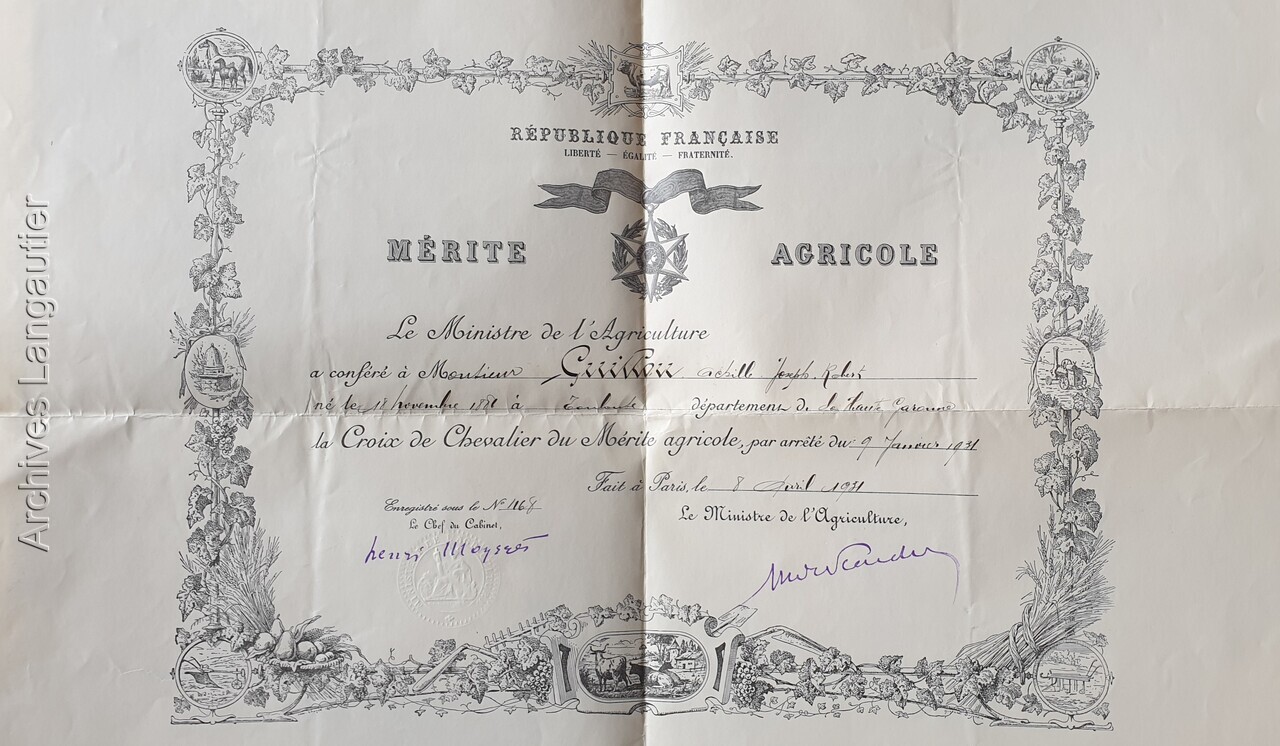 RÉPUBLIQUE FRANÇAISE
LIBERTÉ — ÉGALITÉ — FRATERNITÉ.
MÉRITE AGRICOLE
Le Ministre de l'Agriculture
a conféré à Monsieur Achille Joseph Robert
né le 18 novembre à Toulouse département de la Haute Garonne
la Croix de Chevalier du Mérite agricole, par arrêté du 9 Janvier 1931
Fait à Paris, le 8 Avril 1931
Enregistré sous le N°
Le Chef du Cabinet,
Le Ministre de l'Agriculture,
henri
Archives Langautier